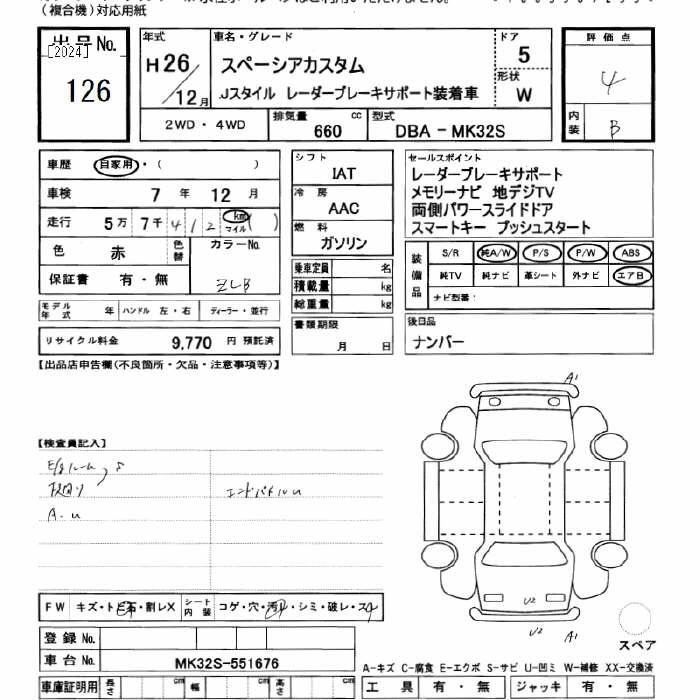 (複合機)対応用紙
出品No.
[2024]
126
年式
H26/12月
車名・グレード
スペーシアカスタム
Jスタイル レーダーブレーキサポート装着車
ドア
5
形状
W
2WD・4WD
排気量
660
cc
型式
DBA-MK32S
評価点
4
内装
B
車歴 自家用・( )
車検 7年 12月
走行 5万7千412 km マイル ( )
色 赤 色替
カラーNo.
ZLB
保証書 有・無
モデル年式 年 ハンドル 左・右 ディーラー・並行
リサイクル料金 9,770 円 預託済
シフト
IAT
冷房
AAC
燃料
ガソリン
乗車定員 名
積載量 kg
総重量 kg
書類期限
月 日
セールスポイント
レーダーブレーキサポート
メモリーナビ 地デジTV
両側パワースライドドア
スマートキー プッシュスタート
装備品
S/R 純A/W P/S P/W ABS
純TV 純ナビ 革シート 外ナビ エアB
ナビ型番:
後日品
ナンバー
【出品店申告欄(不良箇所・欠品・注意事項等)】
【検査員記入】
A・u
FW キズ・トビ石・割レX シート内装 コゲ・穴・汚レ・シミ・破レ・スレ
登録No.
車台No. MK32S-551676
車庫証明用 長さ cm 幅 cm 高さ cm
A1
U2
U2
A1
スペア
A-キズ C-腐食 E-エクボ S-サビ U-凹ミ W-補修 XX-交換済
工具 有・無 ジャッキ 有・無